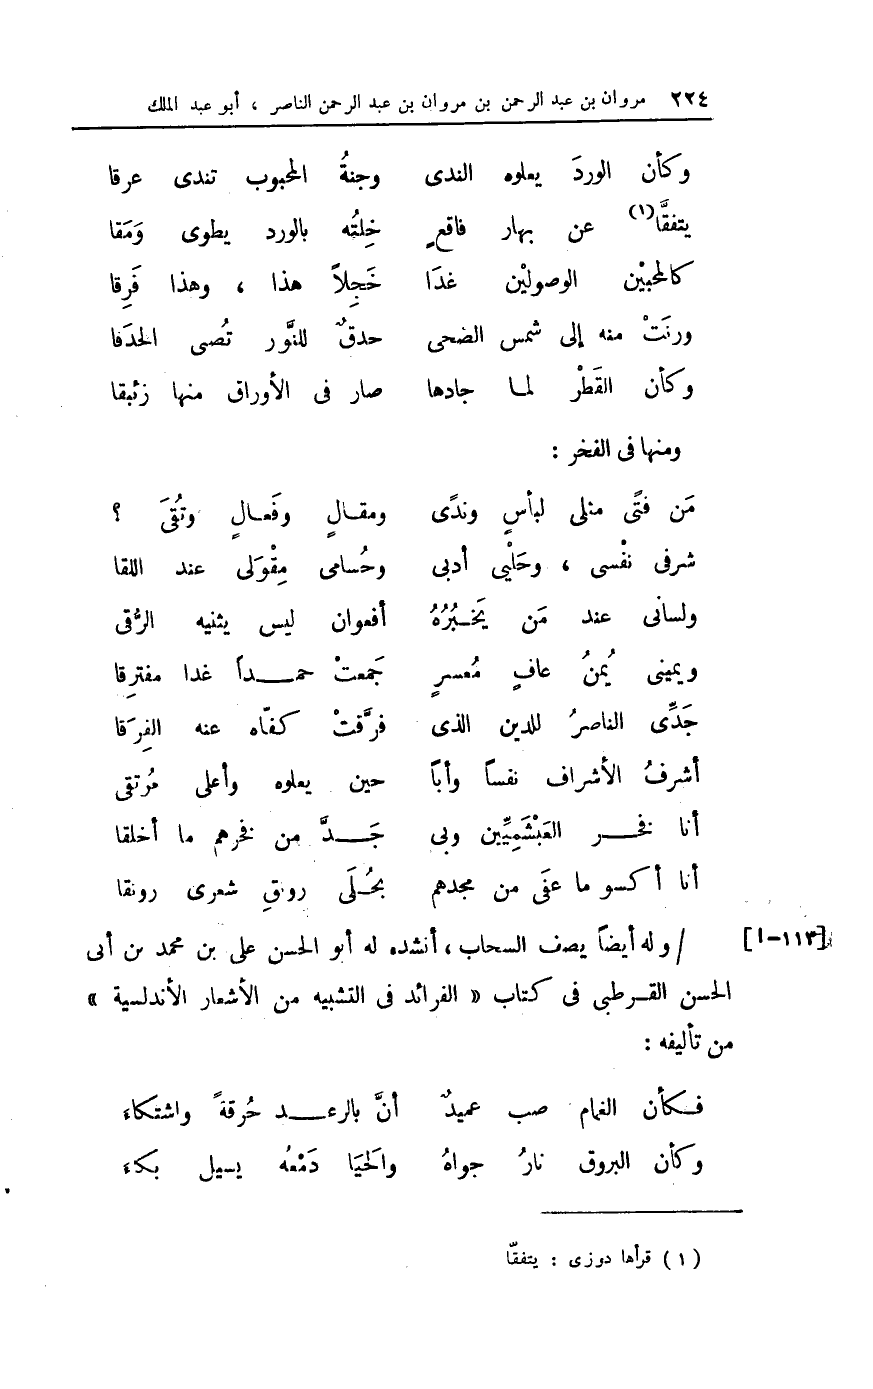 ٢٢٤ مروان بن عبد الرحمن بن مروان بن عبد الرحمن الناصر ، أبو عبد الملك
وكأن الوردَ يعلوه الندى وجنةُ المحبوب تندى عرقا
يتفقَّا(١) عن بهار فاقعٍ خِلتُه بالورد يطوى وَمَقا
كالمحبيْن الوصوليْن غدَا خَجِلاً هذا ، وهذا فَرِقا
ورنَتْ منه إلى شمس الضحى حدقٌ للنَّور تُصى الحدَقا
وكأن القَطْر لما جادها صار فى الأوراق منها زئبقا
ومنها فى الفخر :
مَن فتًى مثلى لبأسٍ وندًى ومقالٍ وفَعالٍ وتُقَى ؟
شرفى نفْسى ، وحَلْيى أدبى وحُسامى مِقْوَلى عند اللقا
ولسانى عند مَن يَخبُرُهُ أفعوان ليس يثنيه الرُّقى
ويمينى يُمنُ عافٍ مُعسرٍ جَمعتْ حمداً غدا مفترِقا
جَدِّى الناصرُ للدين الذى فرَّقتْ كفّاه عنه الفِرَقا
أشرفُ الأشراف نفساً وأباً حين يعلوه وأعلى مُرتقى
أنا فخر العَبْشَمِيِّين وبى جَدَّ من فخرهم ما أخلقا
أنا أكسو ما عفَى من مجدهم بحُلَى رونقِ شعرى رونقا
[١١٣-ا] / وله أيضاً يصف السحاب ، أنشده له أبو الحسن على بن محمد بن أبى
الحسن القرطبى فى كتاب « الفرائد فى التشبيه من الأشعار الأندلسية »
من تأليفه :
فكأن الغمام صب عميدٌ أنَّ بالرعد حُرقةً واشتكاء
وكأن البروق نارُ جواهُ والحَيَا دَمْعُه يسيل بكاء
(١) قرأها دوزى : يتفقّا